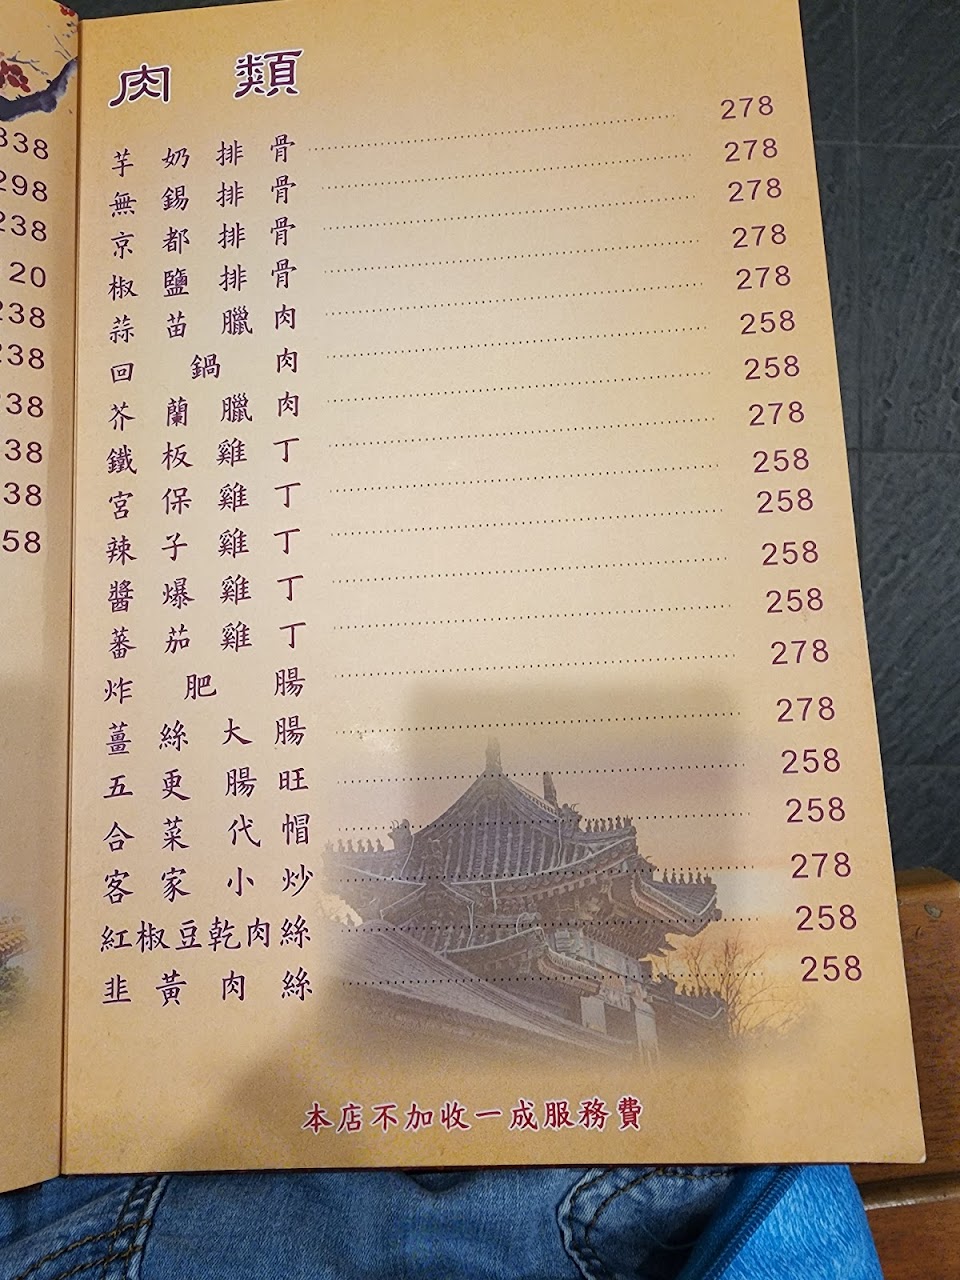 338
298
238
20
238
238
38
38
38
58
肉類
芋奶排骨 278
無錫排骨 278
京都排骨 278
椒鹽排骨 278
蒜苗臘肉 278
回鍋肉 258
芥蘭臘肉 258
鐵板雞丁 278
宮保雞丁 258
辣子雞丁 258
醬爆雞丁 258
蕃茄雞丁 258
炸肥腸 278
薑絲大腸 278
五更腸旺 258
合菜代帽 258
客家小炒 278
紅椒豆乾肉絲 258
韭黃肉絲 258
本店不加收一成服務費